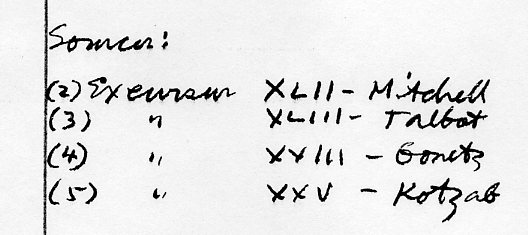 Sources:
(2) Excursus XLII - Mitchell
(3) " XLIII - Talbot
(4) " XXIII - Gonetz
(5) " XXV - Kotzab